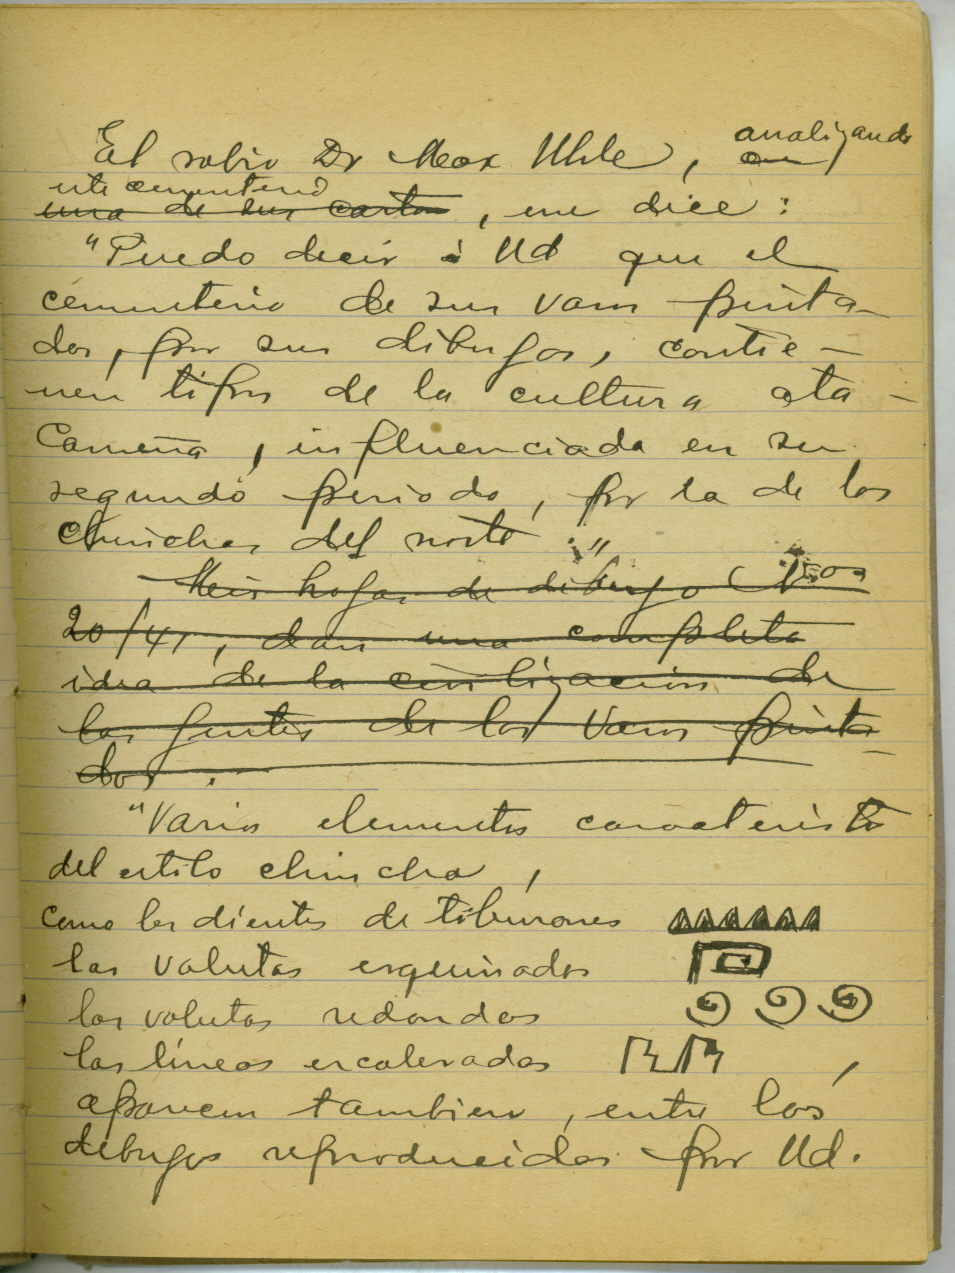 El sabio Dr Max Uhle, en analizando
este cementerio
una de sus cartas, me dice:
"Puedo decir á Ud que el
cementerio de sus vasos pinta-
dos, por sus dibujos, contie-
nen tipos de la cultura ata-
cameña, influenciada en su
segundo periodo, por la de los
chinchas del norte."
Mis hojas de dibujo (Nos
20/41, dan una completa
idea de la civilización de
las gentes de los vasos pinta-
dos.
"Varios elementos caracteristicos
del estilo chincha,
como los dientes de tiburones
las volutas esquinadas
las volutas redondas
las líneas escaleradas ,
aparecen tambien, entre los
dibujos reproducidos por Ud.